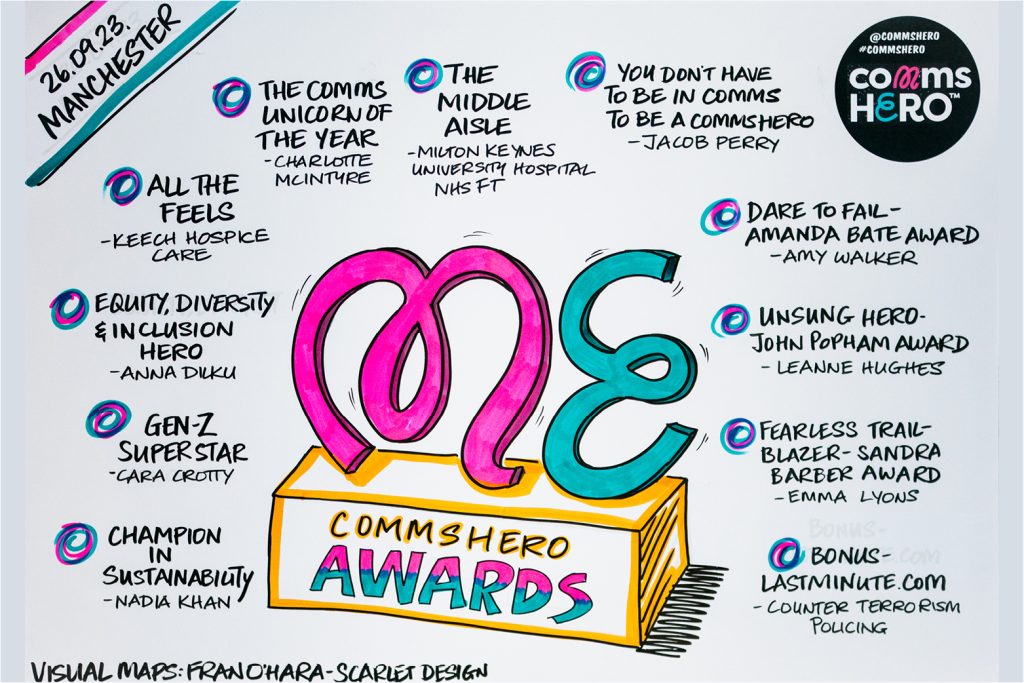 26.09.23.
MANCHESTER
@COMMSHERO
#COMMSHERO
comms
HERO™
THE COMMS
UNICORN OF
THE YEAR
-CHARLOTTE
MCINTYRE
THE
MIDDLE
AISLE
-MILTON KEYNES
UNIVERSITY HOSPITAL
NHS FT
YOU DON'T HAVE
TO BE IN COMMS
TO BE A COMMSHERO
-JACOB PERRY
ALL THE
FEELS
-KEECH HOSPICE
CARE
DARE TO FAIL-
AMANDA BATE AWARD
-AMY WALKER
EQUITY, DIVERSITY
& INCLUSION
HERO
-ANNA DILKU
UNSUNG HERO-
JOHN POPHAM AWARD
- LEANNE HUGHES
GEN-Z
SUPERSTAR
-CARA CROTTY
FEARLESS TRAIL-
BLAZER- SANDRA
BARBER AWARD
- EMMA LYONS
CHAMPION
IN
SUSTAINABILITY
-NADIA KHAN
BONUS-
LASTMINUTE.COM
- COUNTER TERRORISM
POLICING
ME
COMMSHERO
AWARDS
VISUAL MAPS: FRAN O'HARA-SCARLET DESIGN